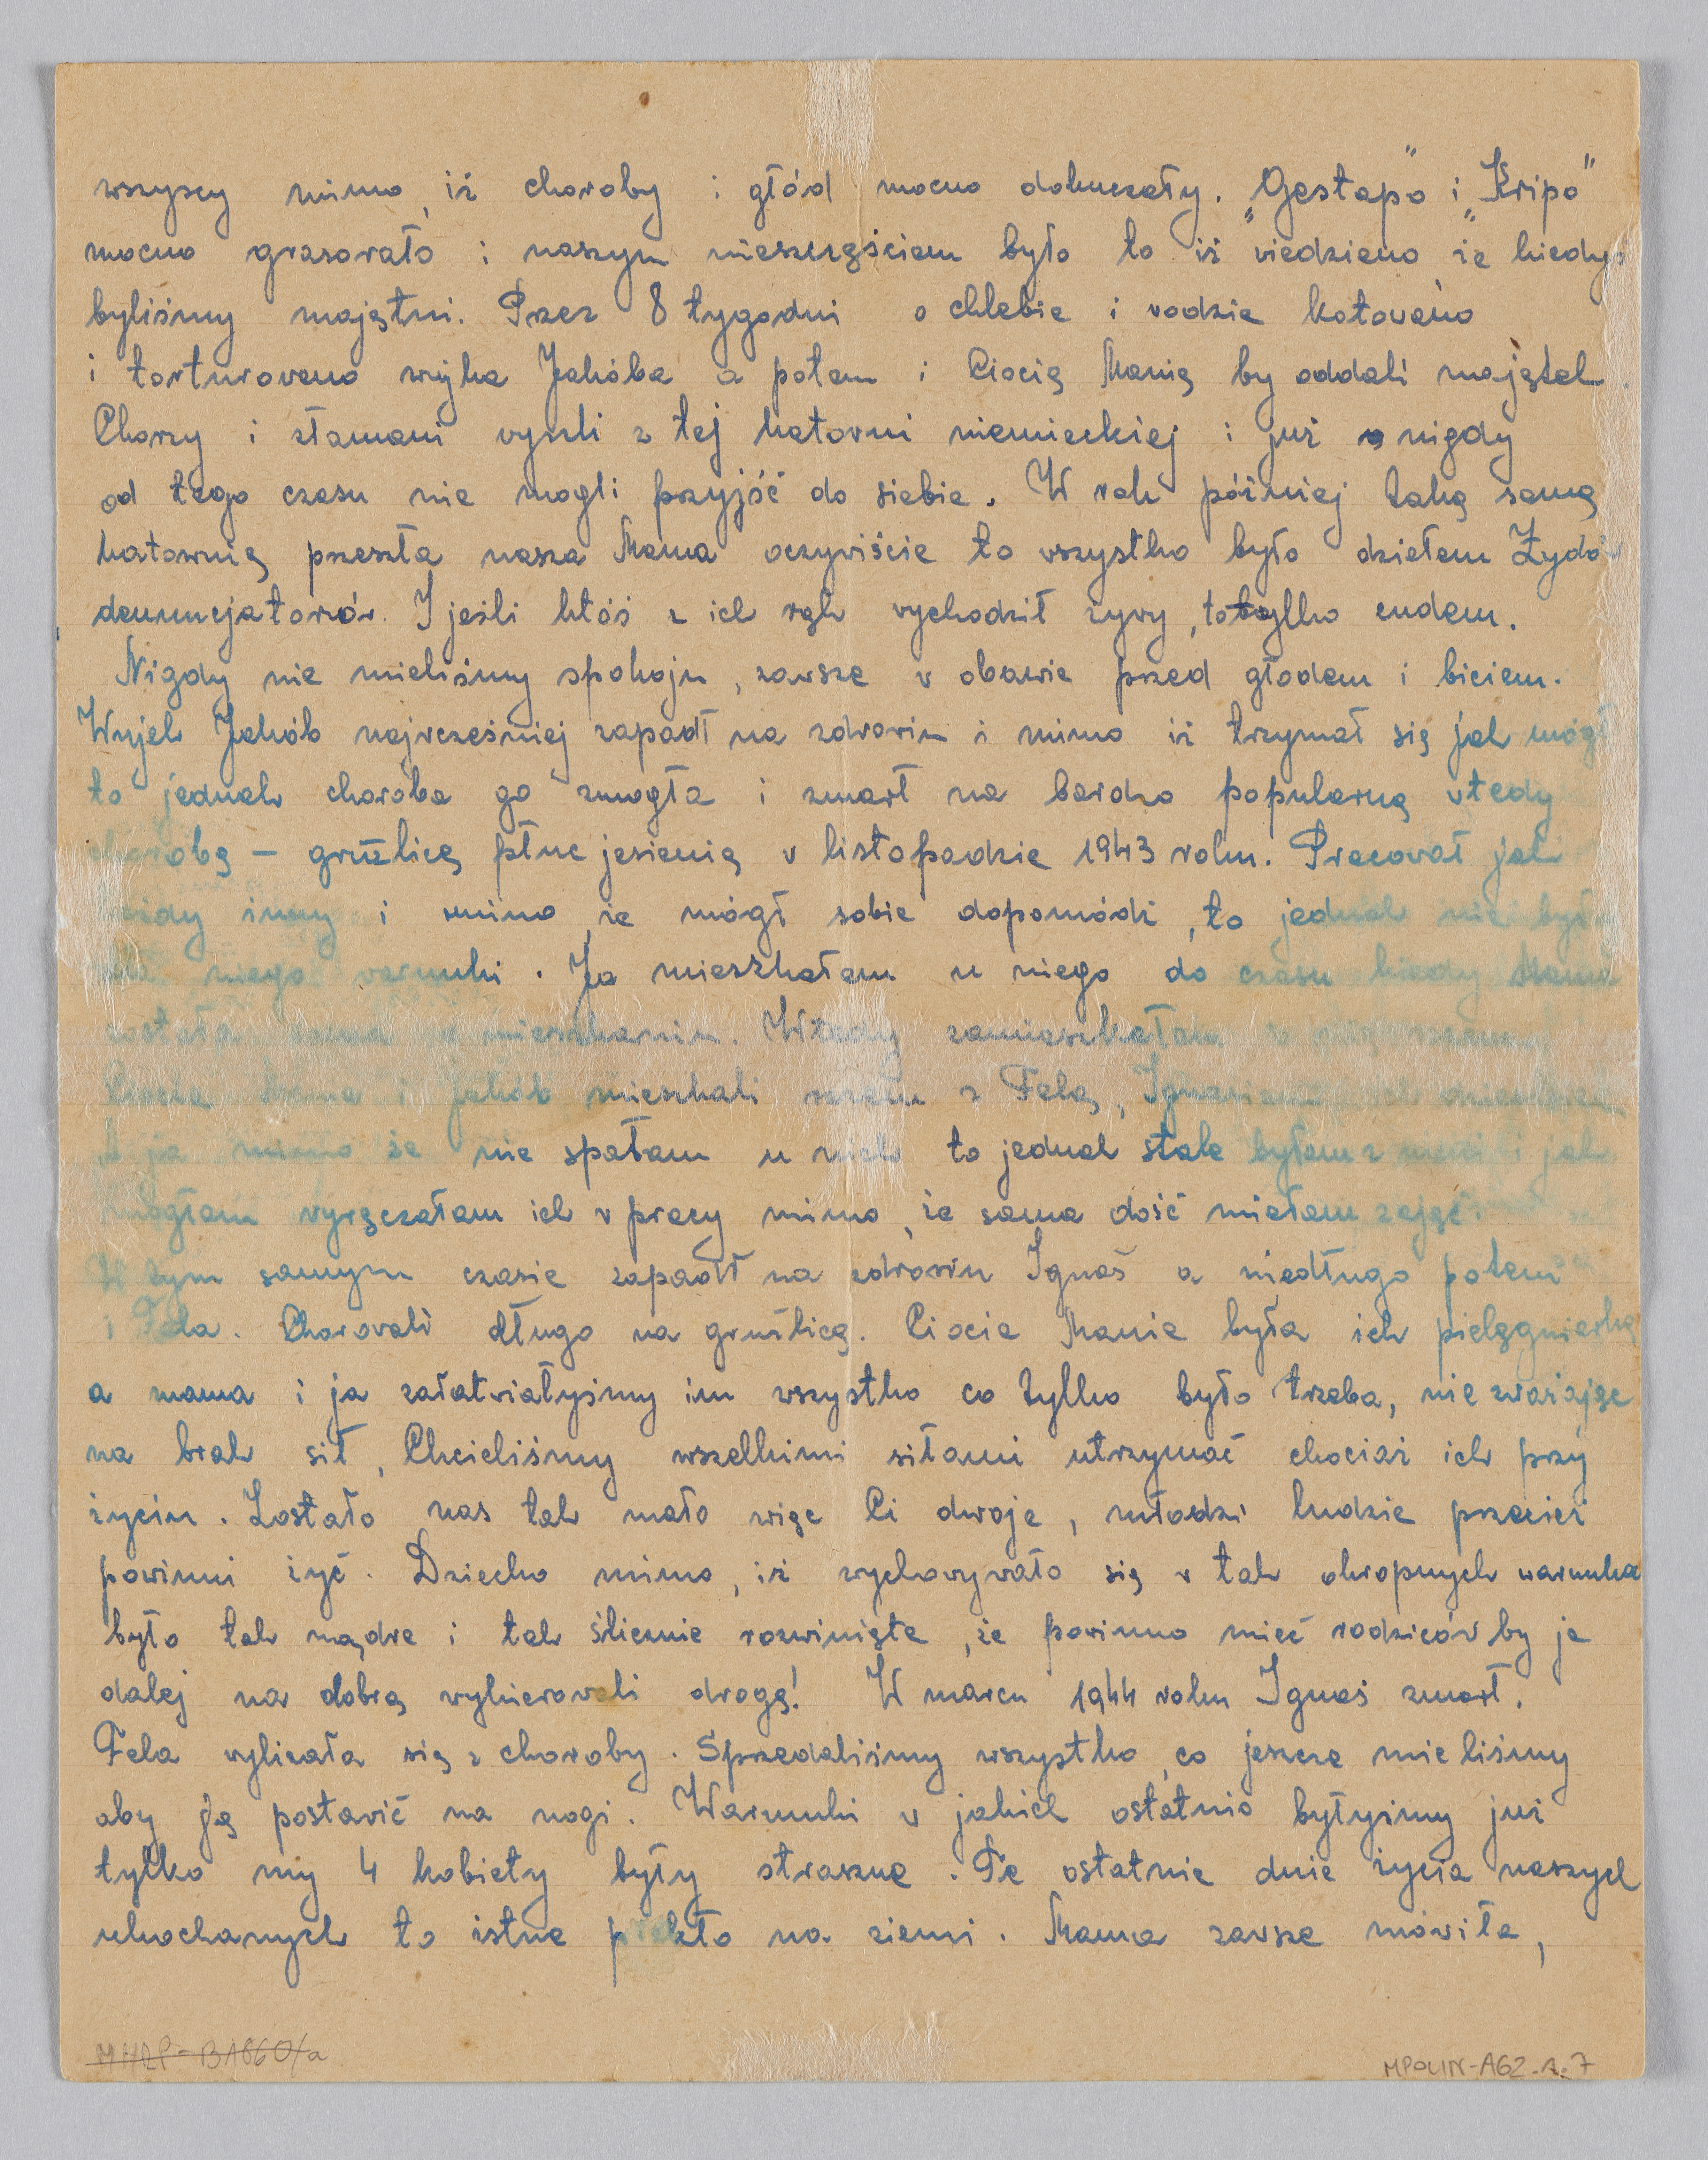 wszyscy mimo, iż choroby i głód mocno dokuczały. „Gestapo" i „Kripo"
mocno grasowało i naszym nieszczęściem było to iż wiedziano że kiedyś
byliśmy majętni. Przez 8 tygodni o chlebie i wodzie katowano
i torturowano wujka Jakóba a potem i Ciocię Manię by oddali majątek.
Chorzy i złamani wyszli z tej katowni niemieckiej i już nigdy
od tego czasu nie mogli przyjść do siebie. W rok później taką samą
katownię przeszła nasza Mama oczywiście to wszystko było dziełem Żydów
denuncjatorów. I jeśli ktoś z ich rąk wychodził żywy, to tylko cudem.
Nigdy nie mieliśmy spokoju, zawsze w obawie przed głodem i biciem.
Wujek Jakób najwcześniej zapadł na zdrowiu i mimo iż trzymał się jak mógł
to jednak choroba go zmogła i zmarł na bardzo popularną wtedy
chorobę – gruźlicę płuc jesienią w listopadzie 1943 roku. Pracował jak
każdy inny i mimo, że mógł sobie dopomódz, to jednak nie było
dla niego warunki. Ja mieszkałam u niego do czasu kiedy Mama
została sama w mieszkaniu. Wtedy zamieszkałam z
Ciocia Mania i Jakób mieszkali razem z Felą, Ignasiem i ich dzieckiem
A ja mimo że nie spałam u nich to jednak stale byłam z nimi i jak
mogłam wyręczałam ich w pracy mimo, że sama dość miałam zajęć.
W tym samym czasie zapadł na zdrowiu Ignaś a niedługo potem
i Fela. Chorowali długo na gruźlicę. Ciocia Mania była ich pielęgniarką
a mama i ja załatwiałyśmy im wszystko co tylko było trzeba, nie zważając
na brak sił, Chcieliśmy wszelkimi siłami utrzymać chociaż ich przy
życiu. Zostało nas tak mało więc Ci dwoje, młodzi ludzie przecież
powinni żyć. Dziecko mimo, iż wychowywało się w tak okropnych warunka
było tak mądre i tak ślicznie rozwinięte, że powinno mieć rodziców by je
dalej na dobrą wykierowali drogę! W marcu 1944 roku Ignaś zmarł.
Fela wylizała się z choroby. Sprzedaliśmy wszystko, co jeszcze mieliśmy
aby Ją postawić na nogi. Warunki w jakich ostatnio byłyśmy już
tylko my 4 kobiety były straszne. Te ostatnie dnie życia naszych
ukochanych to istne piekło na ziemi. Mama zawsze mówiła,
MHRP-B1860/a
MPOLIN-A62.1.7